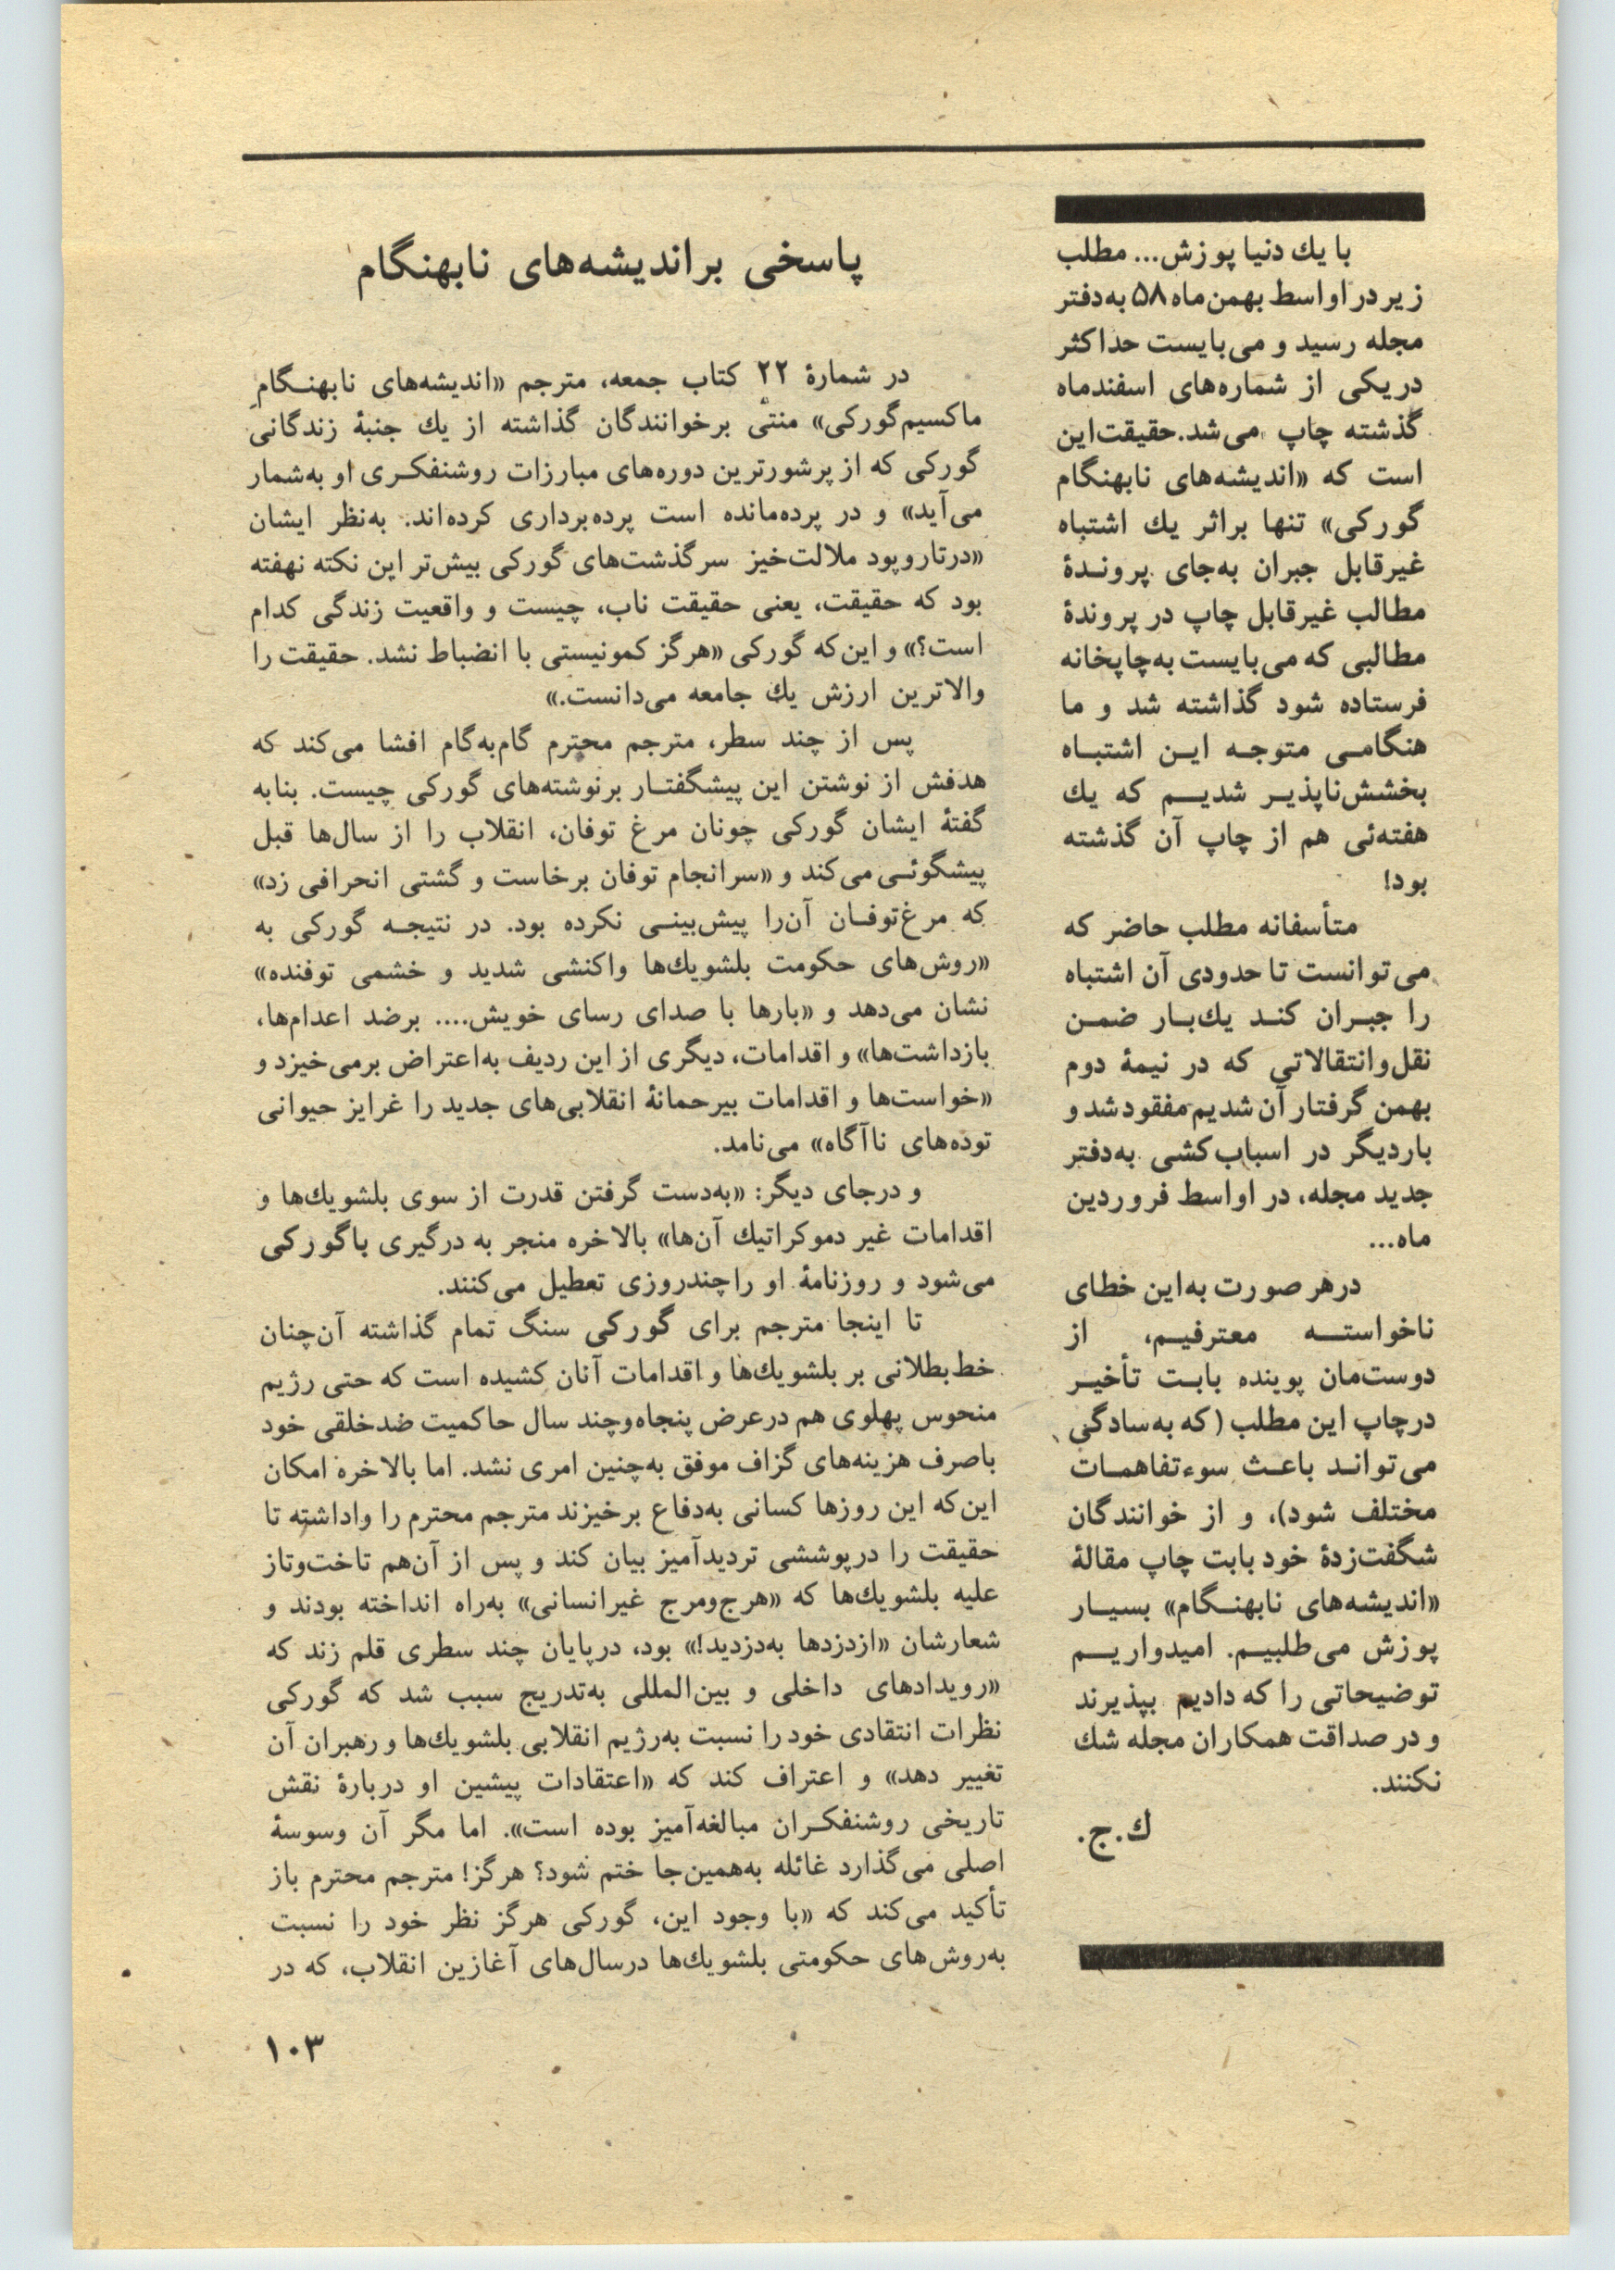 با یك دنیا پوزش... مطلب
زیر در اواسط بهمن‌ماه ۵۸ به‌دفتر
مجله رسید و می‌بایست حداکثر
دریکی از شماره‌های اسفندماه
گذشته چاپ می‌شد. حقیقت‌این
است که «اندیشه‌های نابهنگام
گورکی» تنها براثر یك اشتباه
غیرقابل جبران به‌جای پرونـدهٔ
مطالب غیرقابل چاپ در پروندهٔ
مطالبی که می‌بایست به‌چاپخانه
فرستاده شود گذاشته شد و ما
هنگامـی متوجـه ایـن اشتبـاه
بخشش‌ناپذیـر شدیـم که یك
هفته‌ئی هم از چاپ آن گذشته
بود!
متأسفانه مطلب حاضر که
می‌توانست تا حدودی آن اشتباه
را جبـران کنـد یك‌بـار ضمـن
نقل‌وانتقالاتی که در نیمهٔ دوم
بهمن گرفتار آن شدیم مفقود شد و
باردیگر در اسباب‌کشی به‌دفتر
جدید مجله، در اواسط فروردین
ماه...
درهر صورت به‌این خطای
ناخواستـه معترفیـم، از
دوست‌مان پوینده بابـت تأخیـر
درچاپ این مطلب (که به‌سادگی
می‌توانـد باعـث سوءتفاهمـات
مختلف شود)، و از خوانندگان
شگفت‌زدهٔ خود بابت چاپ مقالهٔ
«اندیشه‌های نابهنـگام» بسیـار
پوزش می‌طلبیـم. امیدواریـم
توضیحاتی را که دادیم بپذیرند
و در صداقت همکاران مجله شك
نکنند.
ك.ج.
پاسخی براندیشه‌های نابهنگام
در شمارهٔ ۲۲ کتاب جمعه، مترجم «اندیشه‌های نابهنـگام
ماکسیم‌گورکی» منتی برخوانندگان گذاشته از یك جنبهٔ زندگانی
گورکی که از پرشورترین دوره‌های مبارزات روشنفکـری او به‌شمار
می‌آید» و در پرده‌مانده است پرده‌برداری کرده‌اند. به‌نظر ایشان
«درتاروپود ملالت‌خیز سرگذشت‌های گورکی بیش‌تر این نکته نهفته
بود که حقیقت، یعنی حقیقت ناب، چیست و واقعیت زندگی کدام
است؟» و این‌که گورکی «هرگز کمونیستی با انضباط نشد. حقیقت را
والاترین ارزش یك جامعه می‌دانست.»
پس از چند سطر، مترجم محترم گام‌به‌گام افشا می‌کند که
هدفش از نوشتن این پیشگفتـار برنوشته‌های گورکی چیست. بنابه
گفتهٔ ایشان گورکی چونان مرغ توفان، انقلاب را از سال‌ها قبل
پیشگوئـی می‌کند و «سرانجام توفان برخاست و گشتی انحرافی زد»
که مرغ‌توفـان آن‌را پیش‌بینـی نکرده بود. در نتیجـه گورکی به
«روش‌های حکومت بلشویك‌ها واکنشی شدید و خشمی توفنده»
نشان می‌دهد و «بارها با صدای رسای خویش.... برضد اعدام‌ها،
بازداشت‌ها» و اقدامات، دیگری از این ردیف به‌اعتراض برمی‌خیزد و
«خواست‌ها و اقدامات بیرحمانهٔ انقلابی‌های جدید را غرایز حیوانی
توده‌های ناآگاه» می‌نامد.
و درجای دیگر: «به‌دست گرفتن قدرت از سوی بلشویك‌ها و
اقدامات غیر دموکراتیك آن‌ها» بالاخره منجر به درگیری باگورکی
می‌شود و روزنامهٔ او را چندروزی تعطیل می‌کنند.
تا اینجا مترجم برای گورکی سنگ تمام گذاشته آن‌چنان
خط‌بطلانی بر بلشویك‌ها و اقدامات آنان کشیده است که حتی رژیم
منحوس پهلوی هم درعرض پنجاه‌وچند سال حاکمیت ضدخلقی خود
باصرف هزینه‌های گزاف موفق به‌چنین امری نشد. اما بالاخره امکان
این‌که این روزها کسانی به‌دفاع برخیزند مترجم محترم را واداشته تا
حقیقت را درپوششی تردیدآمیز بیان کند و پس از آن‌هم تاخت‌وتاز
علیه بلشویك‌ها که «هرج‌ومرج غیرانسانی» به‌راه انداخته بودند و
شعارشان «ازدزدها به‌دزدید!» بود، درپایان چند سطری قلم زند که
«رویدادهای داخلی و بین‌المللی به‌تدریج سبب شد که گورکی
نظرات انتقادی خود را نسبت به‌رژیم انقلابی بلشویك‌ها و رهبران آن
تغییر دهد» و اعتراف کند که «اعتقادات پیشین او دربارهٔ نقش
تاریخی روشنفکـران مبالغه‌آمیز بوده است». اما مگر آن وسوسهٔ
اصلی می‌گذارد غائله به‌همین‌جا ختم شود؟ هرگز! مترجم محترم باز
تأکید می‌کند که «با وجود این، گورکی هرگز نظر خود را نسبت
به‌روش‌های حکومتی بلشویك‌ها درسال‌های آغازین انقلاب، که در
۱۰۳